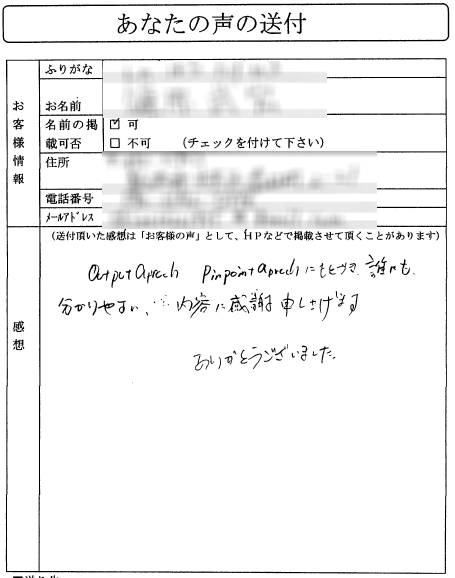 あなたの声の送付
お客様情報
ふりがな
お名前
名前の掲載可否
☑ 可
☐ 不可 (チェックを付けて下さい)
住所
電話番号
メールアドレス
感想
(送付頂いた感想は「お客様の声」として、HPなどで掲載させて頂くことがあります)
OutputAproch PinpointAprochにもとづき、誰にも
分かりやすい、内容に感謝申し上げます
ありがとうございました。